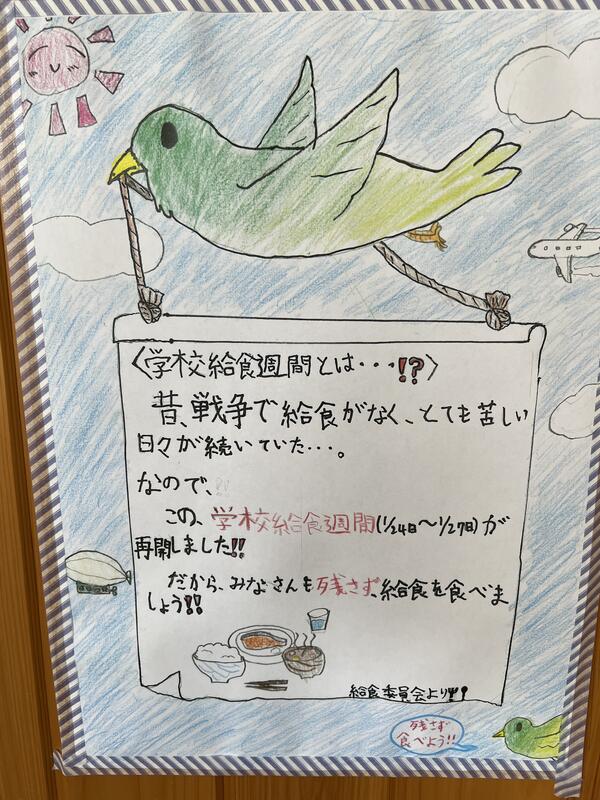 〈学校給食週間とは・・・!?〉
昔、戦争で給食がなく、とても苦しい
日々が続いていた・・・。
なので、
この、学校給食週間(1/24日〜1/27日)が
再開しました!!
だから、みなさんも残さず、給食を食べま
しょう!!
給食委員会より!!
残さず
食べよう!!